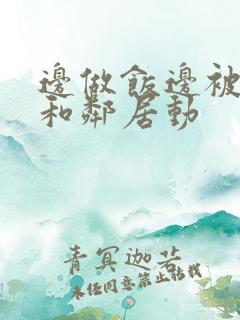 邊做飯邊被
和鄰居動
青冥迦若
未經同意禁止轉載